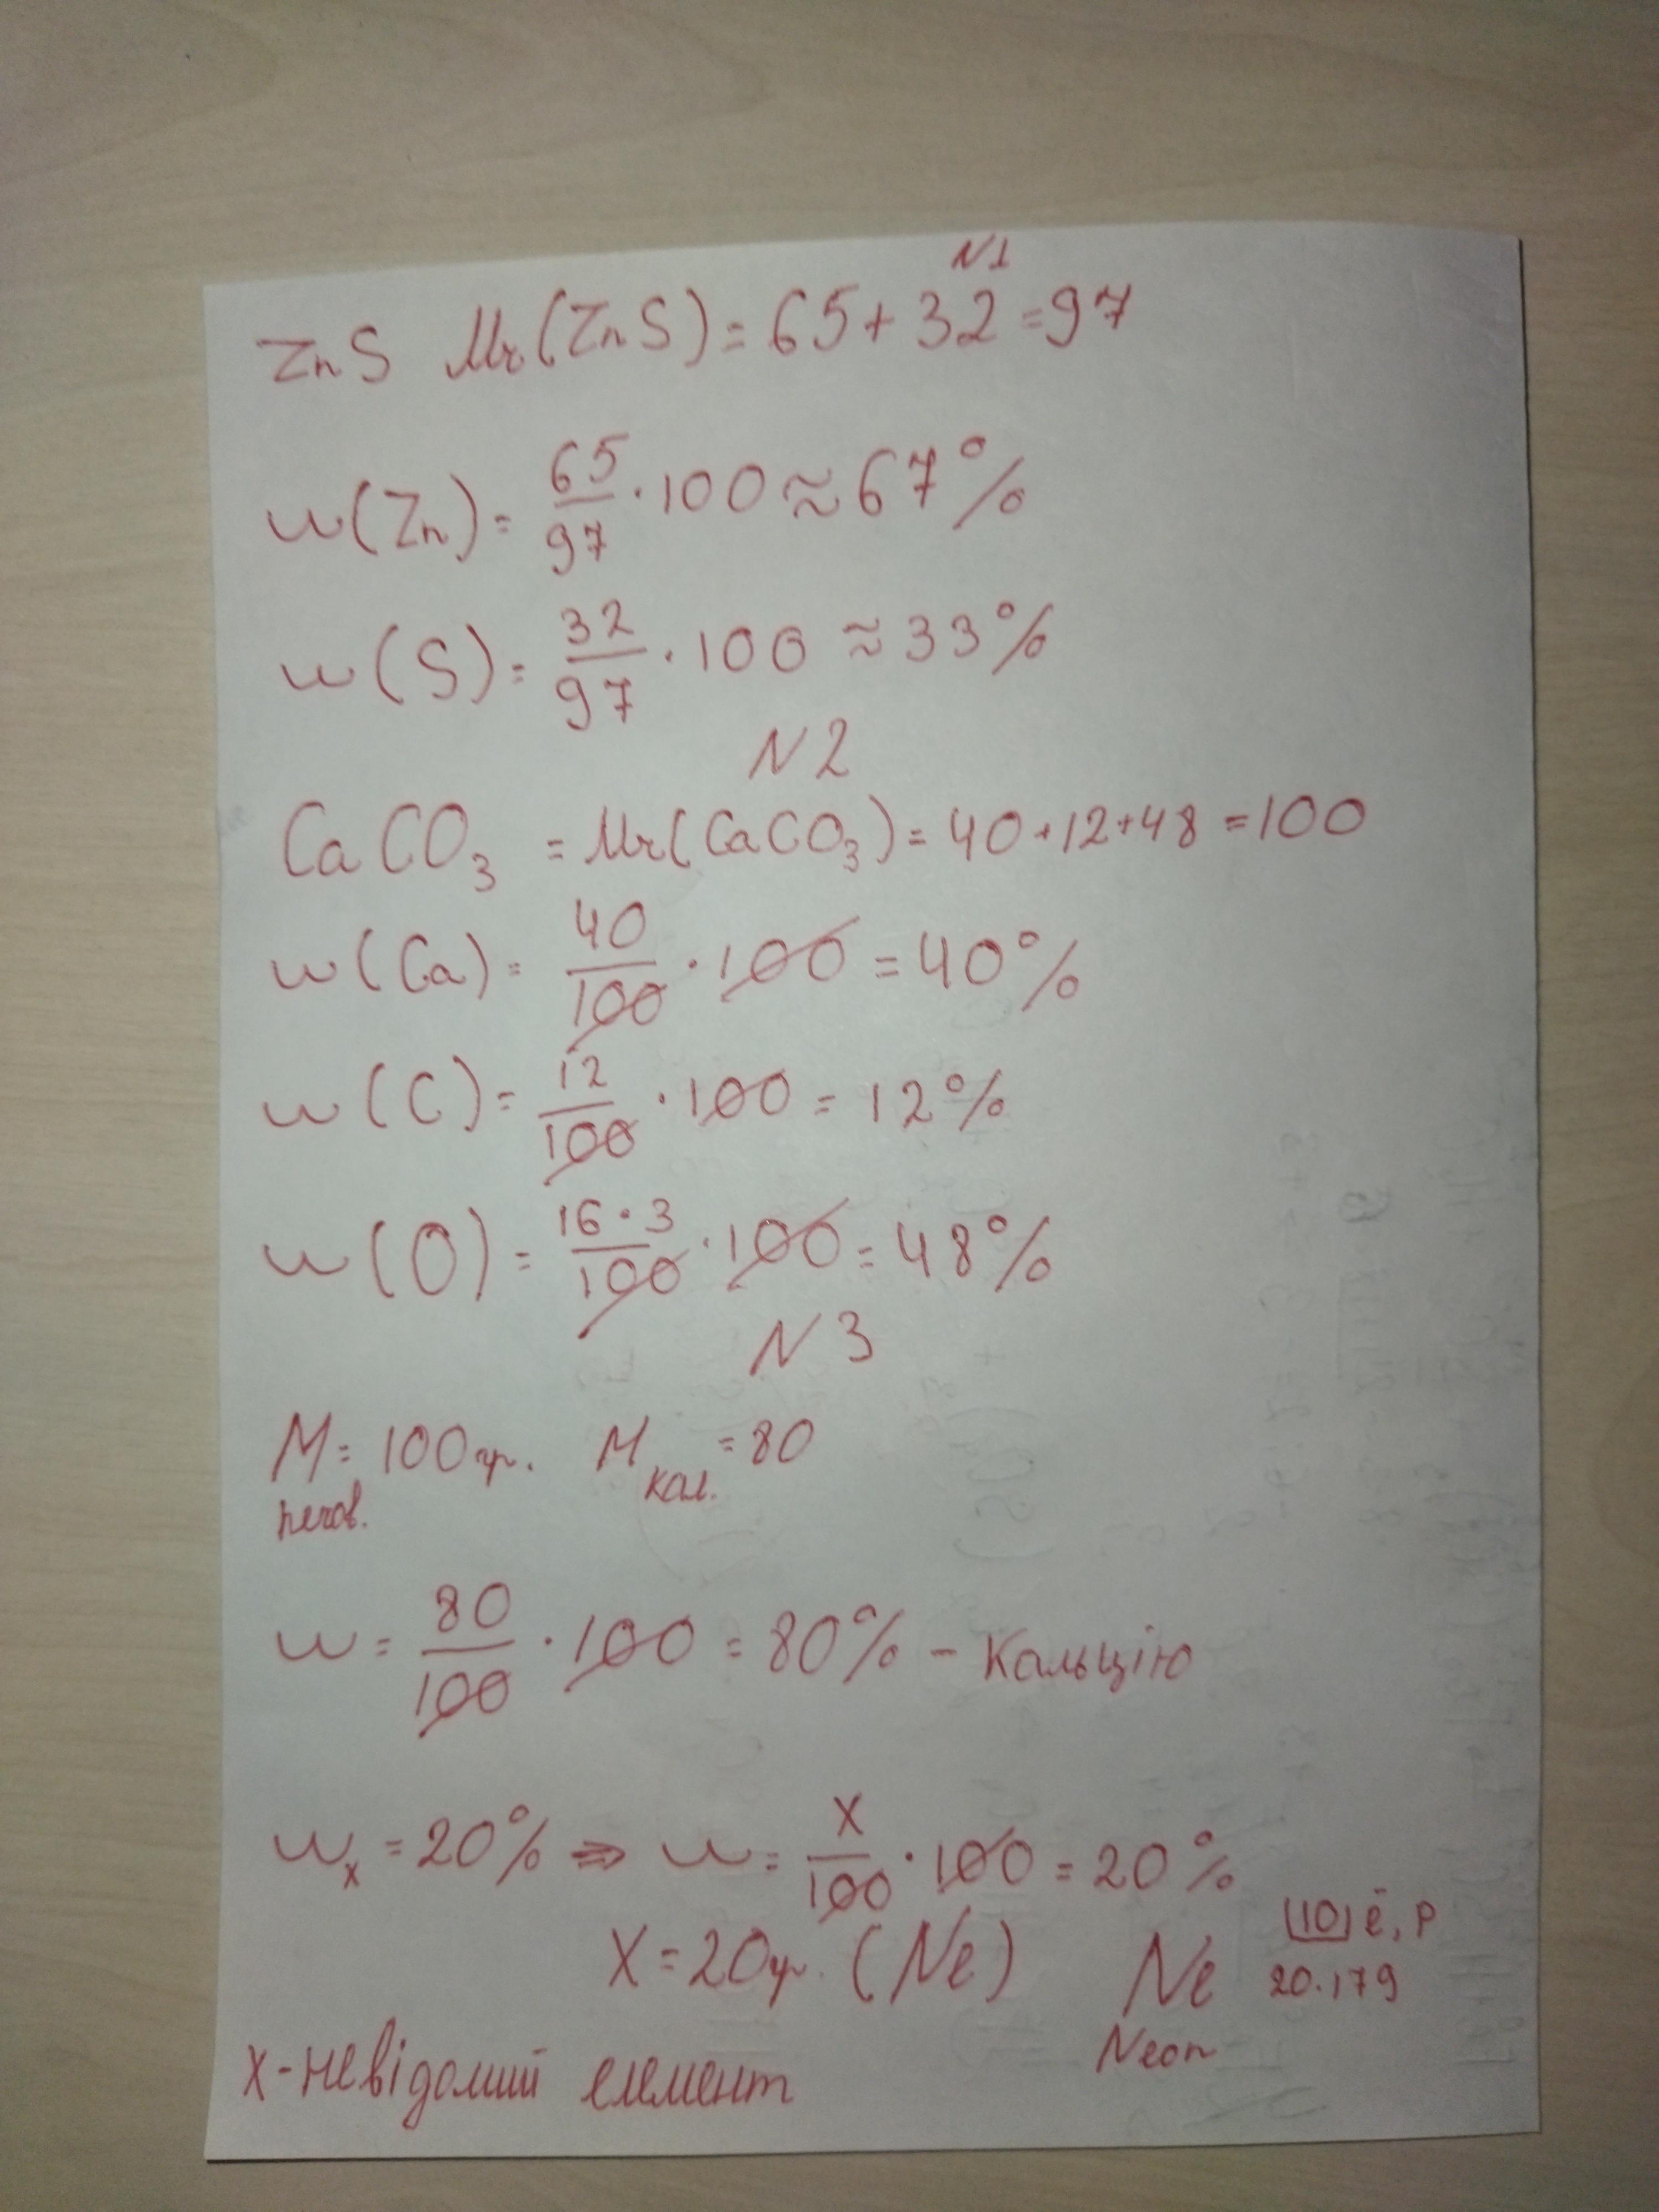 N1
ZnS Mr(ZnS) = 65 + 32 = 97
w(Zn) = 65/97 · 100 ≈ 67%
w(S) = 32/97 · 100 ≈ 33%
N2
CaCO₃ = Mr(CaCO₃) = 40 + 12 + 48 = 100
w(Ca) = 40/100 · 100 = 40%
w(C) = 12/100 · 100 = 12%
w(O) = 16·3/100 · 100 = 48%
N3
M = 100гр. M кал. = 80
речов.
w = 80/100 · 100 = 80% - Кальцію
wₓ = 20% ⇒ w = X/100 · 100 = 20%
X = 20гр. (Ne) Ne |10| ē, P
20.179
Neon
X - невідомий елемент